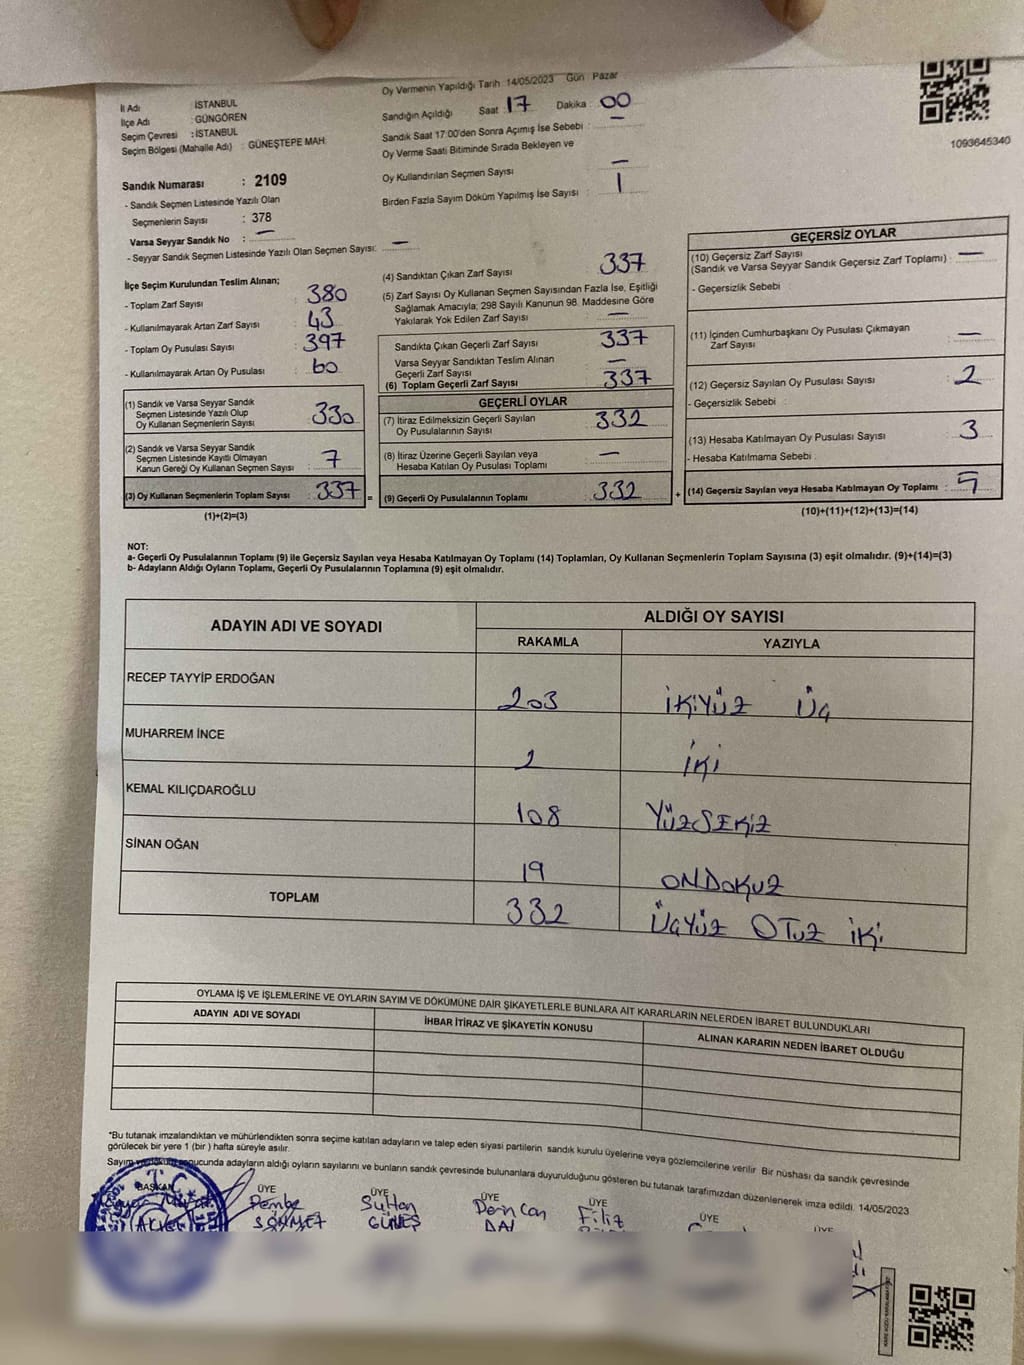 İl Adı : İSTANBUL
İlçe Adı : GÜNGÖREN
Seçim Çevresi : İSTANBUL
Seçim Bölgesi (Mahalle Adı) : GÜNEŞTEPE MAH.
Oy Vermenin Yapıldığı Tarih 14/05/2023 Gün Pazar
Sandığın Açıldığı Saat 17 Dakika : 00
Sandık Saat 17:00'den Sonra Açımış İse Sebebi : —
Oy Verme Saati Bitiminde Sırada Bekleyen ve
Oy Kullandırılan Seçmen Sayısı —
Birden Fazla Sayım Döküm Yapılmış İse Sayısı : 1
1093645340
Sandık Numarası : 2109
- Sandık Seçmen Listesinde Yazılı Olan
Seçmenlerin Sayısı : 378
Varsa Seyyar Sandık No : —
- Seyyar Sandık Seçmen Listesinde Yazılı Olan Seçmen Sayısı: —
İlçe Seçim Kurulundan Teslim Alınan;
- Toplam Zarf Sayısı : 380
- Kullanılmayarak Artan Zarf Sayısı : 43
- Toplam Oy Pusulası Sayısı : 397
- Kullanılmayarak Artan Oy Pusulası : 60
(1) Sandık ve Varsa Seyyar Sandık
Seçmen Listesinde Yazılı Olup
Oy Kullanan Seçmenlerin Sayısı : 330
(2) Sandık ve Varsa Seyyar Sandık
Seçmen Listesinde Kayıtlı Olmayan
Kanun Gereği Oy Kullanan Seçmen Sayısı : 7
(3) Oy Kullanan Seçmenlerin Toplam Sayısı : 337 =
(1)+(2)=(3)
(4) Sandıktan Çıkan Zarf Sayısı : 337
(5) Zarf Sayısı Oy Kullanan Seçmen Sayısından Fazla İse, Eşitliği
Sağlamak Amacıyla; 298 Sayılı Kanunun 98. Maddesine Göre
Yakılarak Yok Edilen Zarf Sayısı : —
Sandıkta Çıkan Geçerli Zarf Sayısı : 337
Varsa Seyyar Sandıktan Teslim Alınan
Geçerli Zarf Sayısı : —
(6) Toplam Geçerli Zarf Sayısı : 337
GEÇERLİ OYLAR
(7) İtiraz Edilmeksizin Geçerli Sayılan
Oy Pusulalarının Sayısı : 332
(8) İtiraz Üzerine Geçerli Sayılan veya
Hesaba Katılan Oy Pusulası Toplamı : —
(9) Geçerli Oy Pusulalarının Toplamı : 332 +
GEÇERSİZ OYLAR
(10) Geçersiz Zarf Sayısı
(Sandık ve Varsa Seyyar Sandık Geçersiz Zarf Toplamı) : —
- Geçersizlik Sebebi :
(11) İçinden Cumhurbaşkanı Oy Pusulası Çıkmayan
Zarf Sayısı : —
(12) Geçersiz Sayılan Oy Pusulası Sayısı : 2
- Geçersizlik Sebebi :
(13) Hesaba Katılmayan Oy Pusulası Sayısı : 3
- Hesaba Katılmama Sebebi :
(14) Geçersiz Sayılan veya Hesaba Katılmayan Oy Toplamı : 5
(10)+(11)+(12)+(13)=(14)
NOT:
a- Geçerli Oy Pusulalarının Toplamı (9) ile Geçersiz Sayılan veya Hesaba Katılmayan Oy Toplamı (14) Toplamları, Oy Kullanan Seçmenlerin Toplam Sayısına (3) eşit olmalıdır. (9)+(14)=(3)
b- Adayların Aldığı Oyların Toplamı, Geçerli Oy Pusulalarının Toplamına (9) eşit olmalıdır.
ADAYIN ADI VE SOYADI ALDIĞI OY SAYISI
RAKAMLA YAZIYLA
RECEP TAYYİP ERDOĞAN 203 İKİYÜZ ÜÇ
MUHARREM İNCE 2 İKİ
KEMAL KILIÇDAROĞLU 108 YÜZSEKİZ
SİNAN OĞAN 19 ONDOKUZ
TOPLAM 332 ÜÇYÜZ OTUZ İKİ
OYLAMA İŞ VE İŞLEMLERİNE VE OYLARIN SAYIM VE DÖKÜMÜNE DAİR ŞİKAYETLERLE BUNLARA AİT KARARLARIN NELERDEN İBARET BULUNDUKLARI
ADAYIN ADI VE SOYADI İHBAR İTİRAZ VE ŞİKAYETİN KONUSU ALINAN KARARIN NEDEN İBARET OLDUĞU
*Bu tutanak imzalandıktan ve mühürlendikten sonra seçime katılan adayların ve talep eden siyasi partilerin sandık kurulu üyelerine veya gözlemcilerine verilir. Bir nüshası da sandık çevresinde
görülecek bir yere 1 (bir) hafta süreyle asılır.
Sayım sonucunda adayların aldığı oyların sayılarını ve bunların sandık çevresinde bulunanlara duyurulduğunu gösteren bu tutanak tarafımızdan düzenlenerek imza edildi. 14/05/2023
BAŞKAN ÜYE ÜYE ÜYE ÜYE ÜYE ÜYE
Pembe Sultan Dercan Filiz
GÜNEŞ
T.C.